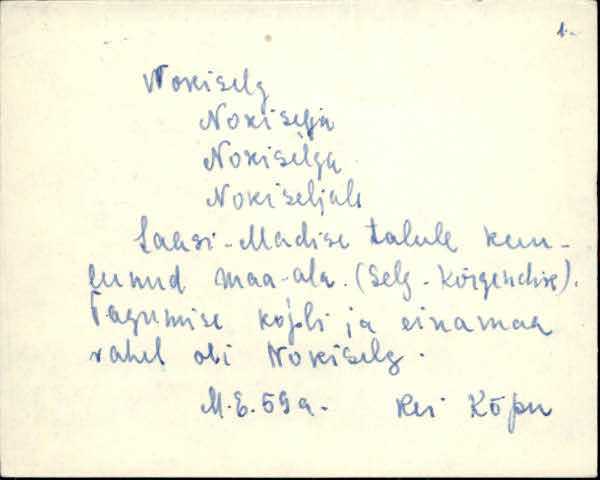 1.
Nokiselg
Nokiselja
Nokiselga
Nokiseljale
Saasi-Madise talule kuu-
lunud maa-ala. (Selg - Kõrgendik).
Tagumise kopli ja einamaa
vahel oli Nokiselg.
M.E. 59 a. Rei Kõpu